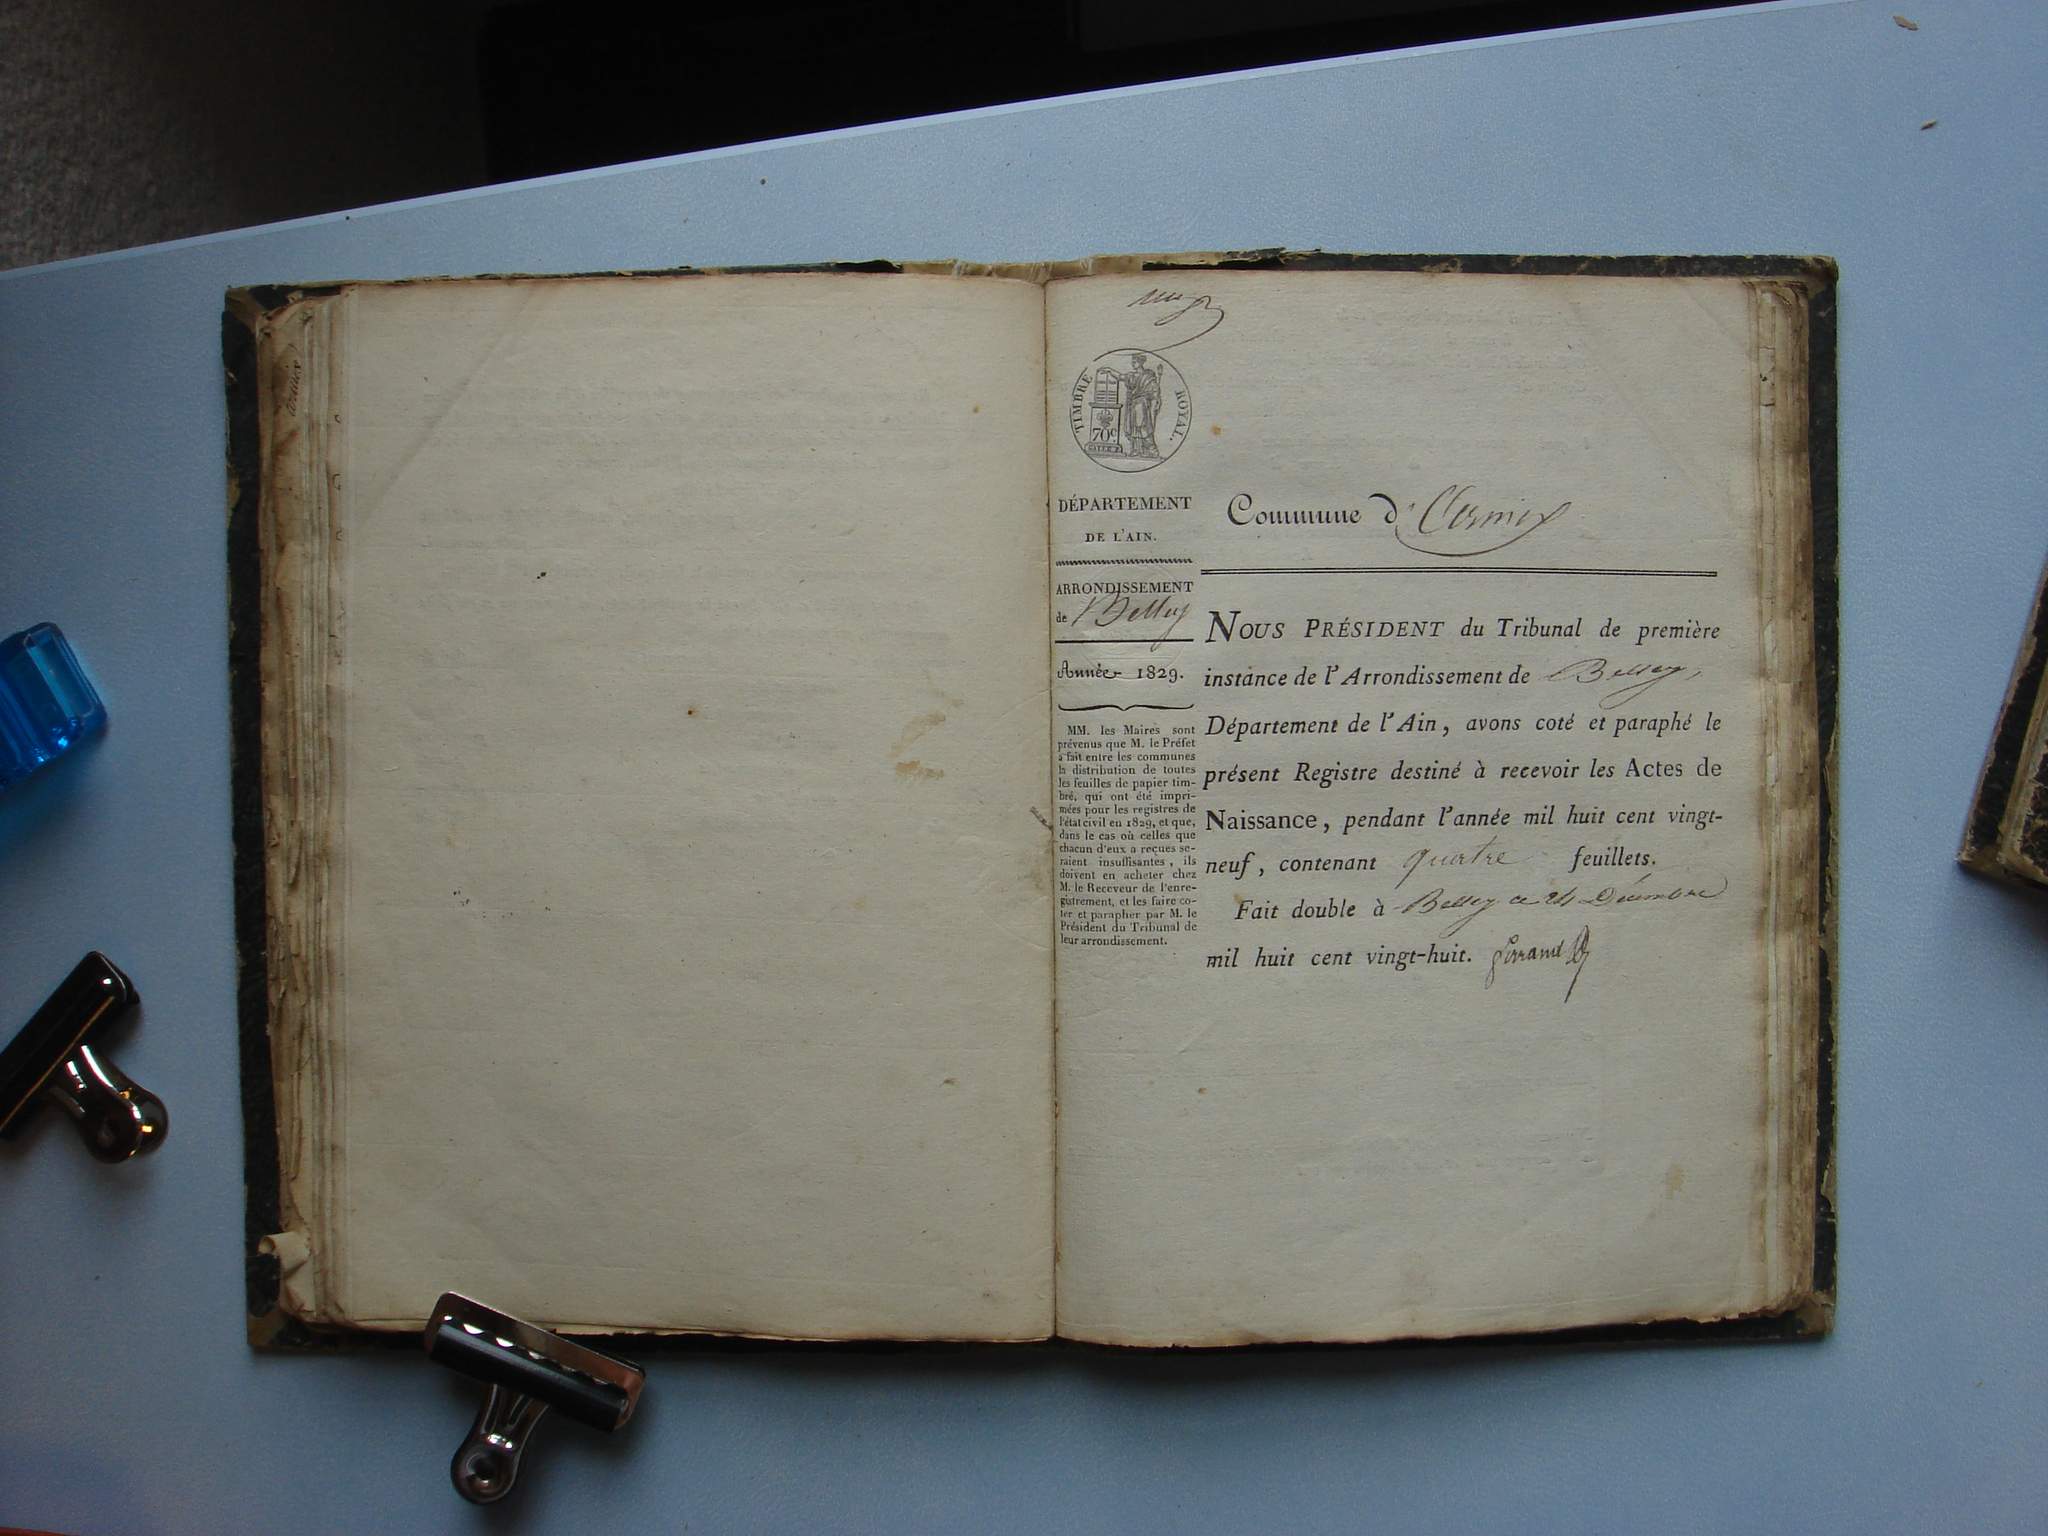 TIMBRE ROYAL.
70c
DÉPARTEMENT
DE L'AIN.
ARRONDISSEMENT
de Belley
Année 1829.
MM. les Maires sont
prévenus que M. le Préfet
a fait entre les communes
la distribution de toutes
les feuilles de papier tim-
bré, qui ont été impri-
mées pour les registres de
l'état civil en 1829, et que,
dans le cas où celles que
chacun d'eux a reçues se-
raient insuffisantes, ils
doivent en acheter chez
M. le Receveur de l'enre-
gistrement, et les faire co-
ter et parapher par M. le
Président du Tribunal de
leur arrondissement.
Commune d'
NOUS PRÉSIDENT du Tribunal de première
instance de l'Arrondissement de Belley,
Département de l'Ain, avons coté et paraphé le
présent Registre destiné à recevoir les Actes de
Naissance, pendant l'année mil huit cent vingt-
neuf, contenant quatre feuillets.
Fait double à Belley ce 24 Décembre
mil huit cent vingt-huit.